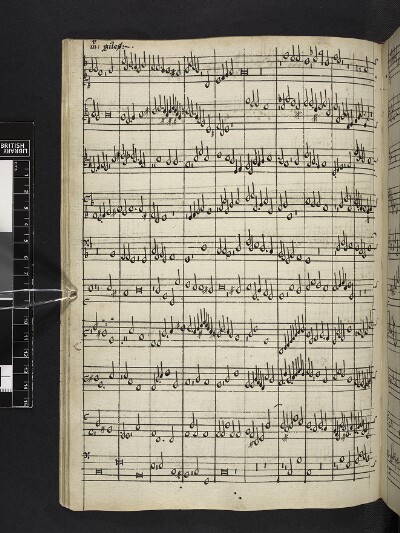 mr giles:-
BRITISH
LIBRARY